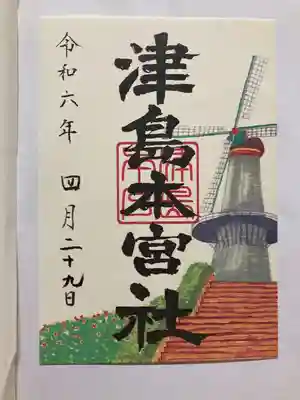 津島本宮社
令和六年
四月二十九日